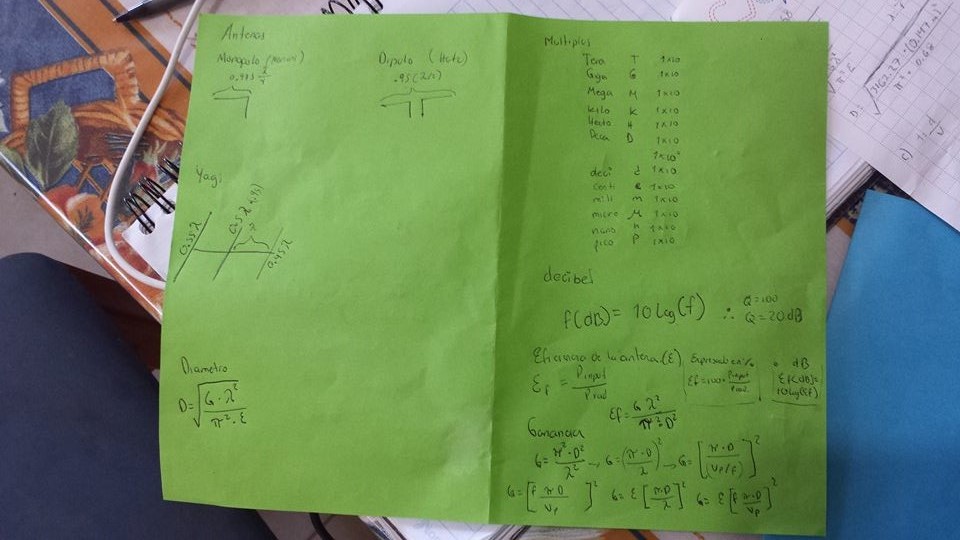 Antenas
Monopolo (Marconi)
Dipolo (Hertz)
.95(λ/2)
Yagi
0.55λ
0.45λ
Diametro
D=√(G·λ²/π²·ε)
Multiplus
Tera T 1x10
Giga G 1x10
Mega M 1x10
kilo K 1x10
Hecto H 1x10
Deca D 1x10
1x10°
deci d 1x10
centi c 1x10
mili m 1x10
micro M 1x10
nano n 1x10
pico P 1x10
decibel
f(dB)= 10 Log(f) ∴ Q=100
Q=20 dB
Eficiencia de la antena (ε) Expresado en % o dB
εf = Pinput/Prad
Ef=100· Pinput/Prad
Ef(dB)=
10log(Ef)
Ef= G λ²/π²·D²
Ganancia
G= π²·D²/λ² → G=(π·D/λ)² → G=[π·D/(Vp/f)]²
G=[f π·D/Vp]² G= ε[π·D/λ]² G= ε[f π·D/Vp]²